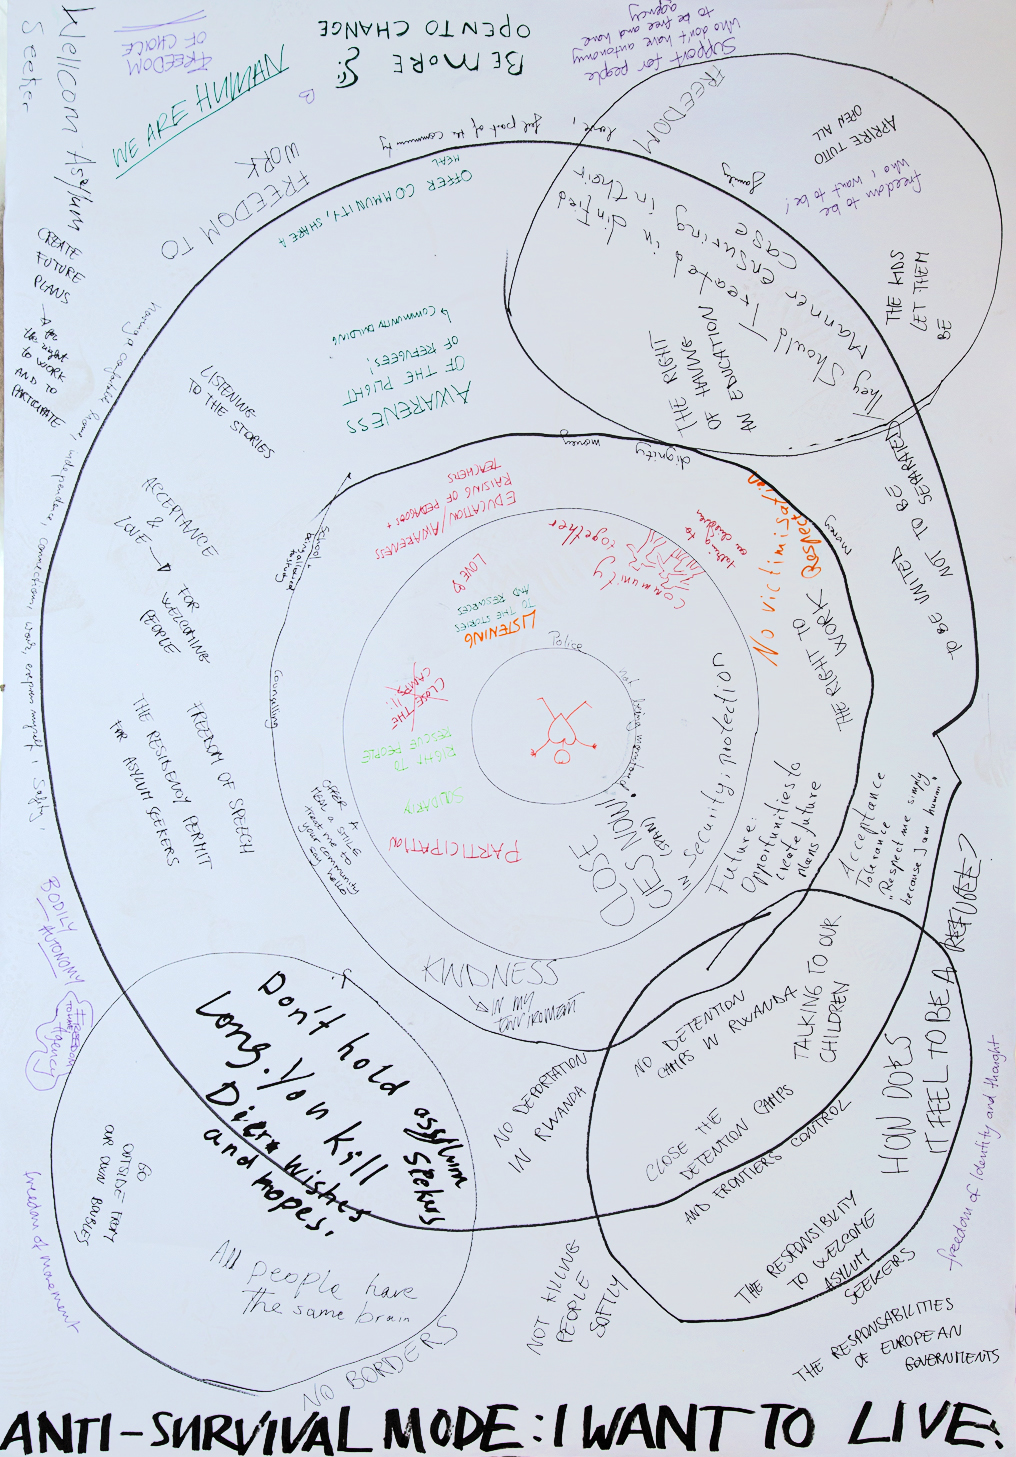 Wellcom Asylum
Seeker
FREEDOM
OF CHOICE
WE ARE HUMAN
BE MORE
OPEN TO CHANGE
support for people
who don't have autonomy
to be free and have
agency
FREEDOM
APRIRE TUTTO
OPEN ALL
freedom to be
who i want to be!
THE KIDS
LET THEM
BE
family
They should Treated in dinfied
Manner ensuring in their
case
THE RIGHT
OF HAVING
AN EDUCATION
FREEDOM TO
WORK
feel part of the community
love,
OFFER COMMUNITY, SHARE A
MEAL
CREATE
FUTURE
PLANS
the right
to WORK
AND TO
PARTICIPATE
having a comfortable home, independence, connections, work, express myself, safety,
LISTENING
TO THE STORIES
AWARENESS
OF THE PLIGHT
OF REFUGEES,
↳ COMMUNITY BUILDING
ACCEPTANCE
&
LOVE → FOR
WELCOMING
PEOPLE
money
dignity
EDUCATION/AWARENESS
RAISING OF PEDAGOGS +
TEACHERS
LOVE
LISTENING
TO THE STORIES
AND RESOURCES
community together
No victimisation
Respect
money
THE RIGHT TO WORK
TO BE UNITED
NOT TO BE SEPARATED
Police
not being monitored
CLOSE THE
CAMPS!!
RIGHT TO
RESCUE PEOPLE
SOLIDARITY
PARTICIPATION
counselling
OFFER A
MEAL a SMILE
treat me to
your community
say hello
FREEDOM OF SPEECH
THE RESIDENCY PERMIT
FOR ASYLUM SEEKERS
CLOSE
CIES NOW!
(SPAIN)
Security; protection
Future:
Opportunities to
create future
plans
Acceptance
Tolerance
"Respect me simply
because I am human."
KINDNESS
IN MY
ENVIROMENT
BODILY
AUTONOMY
FREEDOM
Agency
Don't hold assylum
long. You kill seekers
Dier wishes
and hopes.
GO
OUTSIDE FROM
OUR OWN BOUBLES
freedom of movement
All people have
the same brain
NO BORDERS
NO DEPORTATION
IN RWANDA
NO DETENTION
CAMPS IN RWANDA
TALKING TO OUR
CHILDREN
CLOSE THE
DETENTION CAMPS
AND FRONTIERS CONTROL
HOW DOES
IT FEEL TO BE A REFUGEE?
freedom of Identity and thought
THE RESPONSIBILITY
TO WELCOME
ASYLUM
SEEKERS
NOT KILLING
PEOPLE
SOFTLY
THE RESPONSABILITIES
OF EUROPEAN
GOVERNMENTS
ANTI-SURVIVAL MODE: I WANT TO LIVE.